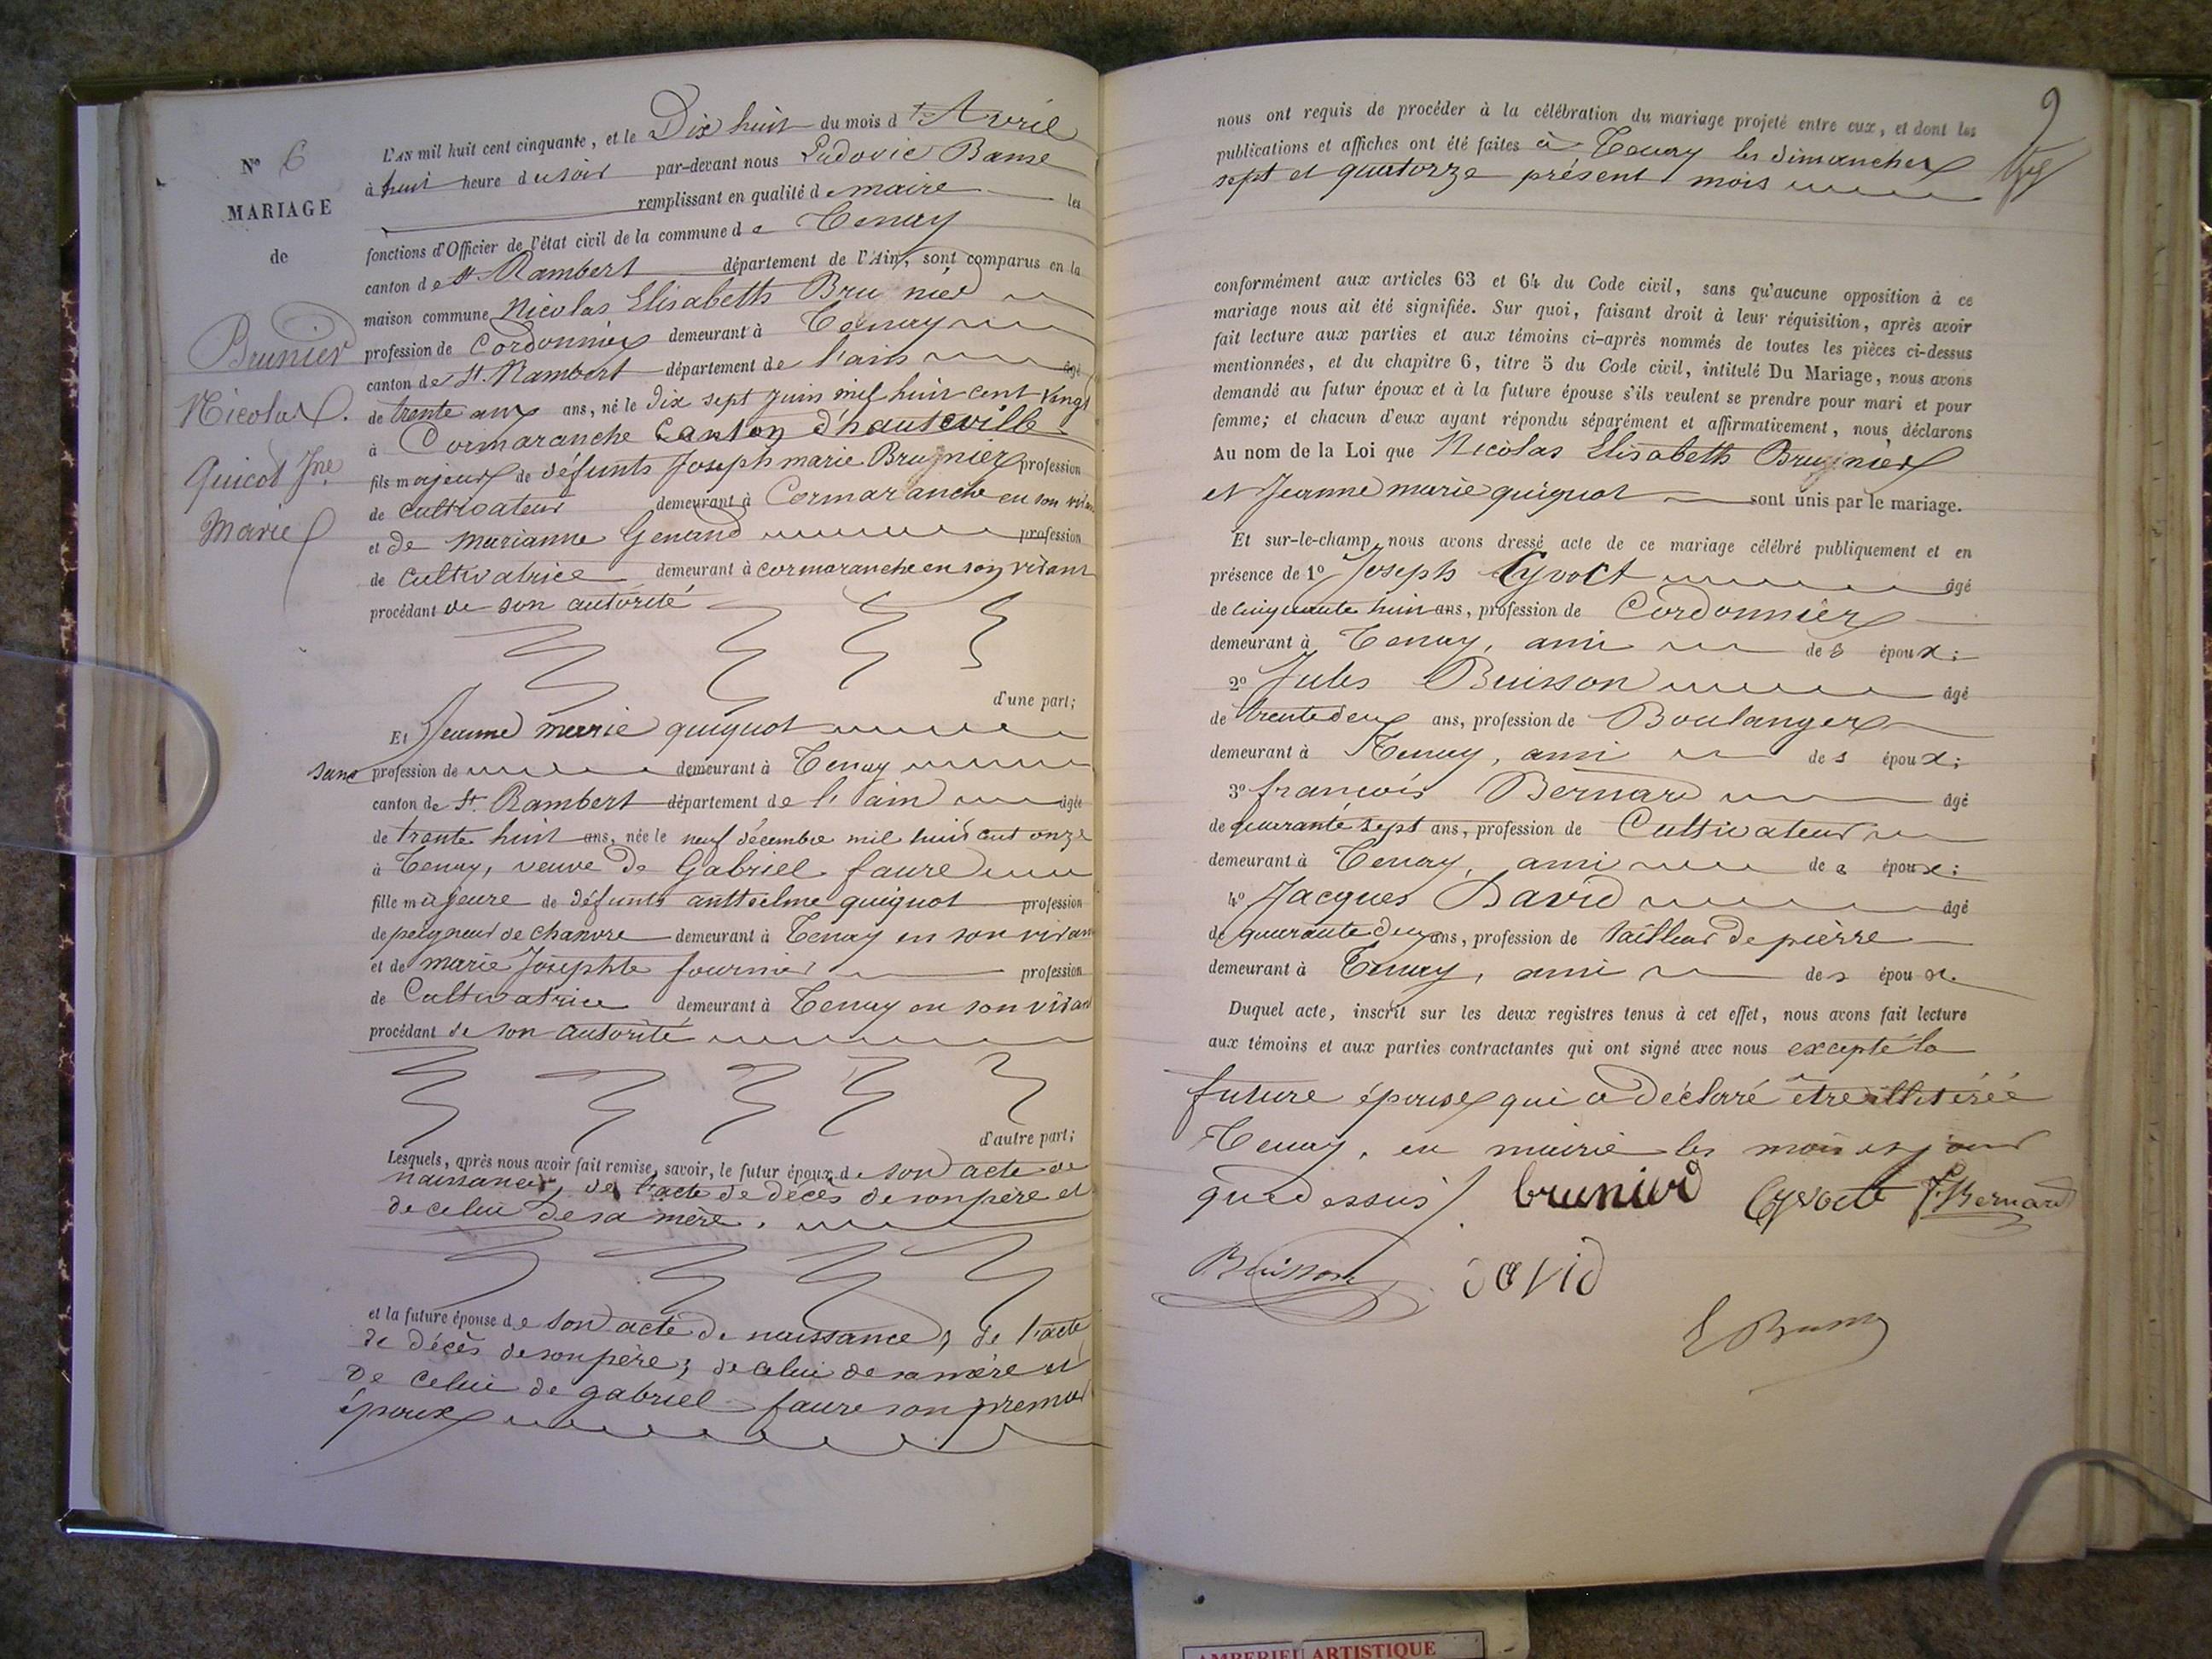 N° 6
MARIAGE
de
Brunier
Nicolas.
Quicot Jne
Marie
L'AN mil huit cent cinquante, et le Dix huit du mois d'Avril
à huit heure du soir par-devant nous Ludovic
remplissant en qualité de maire les
fonctions d'Officier de l'état civil de la commune de Tenay
canton de St Rambert département de l'Ain, sont comparus en la
maison commune Nicolas Elisabeth Brunier
profession de Cordonnier demeurant à Tenay
canton de St. Rambert département de l'ain âgé
de trente ans ans, né le dix sept juin mil huit cent vingt
à Cormaranche Canton d'hauteville
fils majeur de défunts Joseph marie Brugnier profession
de cultivateur demeurant à Cormaranche en son vivant
et de Marianne Genand profession
de cultivatrice demeurant à cormaranche en son vivant
procédant de son autorité
d'une part;
Et Jeanne marie guiguot
sans profession de demeurant à Tenay
canton de St. Rambert département de l'ain âgée
de trente huit ans, née le neuf décembre mil huit cent onze
à Tenay, veuve de Gabriel faure
fille majeure de défunts anthelme guiguot profession
de peigneur de chanvre demeurant à Tenay en son vivant
et de marie Josephte fournier profession
de Cultivatrice demeurant à Tenay en son vivant
procédant de son autorité
d'autre part;
Lesquels, après nous avoir fait remise, savoir, le futur époux de son acte de
naissance, de l'acte de décès de son père et
de celui de sa mère.
et la future épouse de son acte de naissance, de l'acte
de décès de son père; de celui de sa mère et
de celui de gabriel faure son premier
époux
9
nous ont requis de procéder à la célébration du mariage projeté entre eux, et dont les
publications et affiches ont été faites à Tenay les dimanches
sept et quatorze présent mois
conformément aux articles 63 et 64 du Code civil, sans qu'aucune opposition à ce
mariage nous ait été signifiée. Sur quoi, faisant droit à leur réquisition, après avoir
fait lecture aux parties et aux témoins ci-après nommés de toutes les pièces ci-dessus
mentionnées, et du chapitre 6, titre 5 du Code civil, intitulé Du Mariage, nous avons
demandé au futur époux et à la future épouse s'ils veulent se prendre pour mari et pour
femme; et chacun d'eux ayant répondu séparément et affirmativement, nous déclarons
Au nom de la Loi que Nicolas Elisabeth Brugnier
et Jeanne marie guiguot sont unis par le mariage.
Et sur-le-champ nous avons dressé acte de ce mariage célébré publiquement et en
présence de 1° Joseph âgé
de cinquante huit ans, profession de Cordonnier
demeurant à Tenay, ami des époux;
2° Jules Buisson âgé
de trente deux ans, profession de Boulanger
demeurant à Tenay, ami des époux;
3° françois Bernard âgé
de quarante sept ans, profession de Cultivateur
demeurant à Tenay, ami des époux;
4° Jacques David âgé
de quarante deux ans, profession de tailleur de pierre
demeurant à Tenay, ami des époux.
Duquel acte, inscrit sur les deux registres tenus à cet effet, nous avons fait lecture
aux témoins et aux parties contractantes qui ont signé avec nous excepté la
future épouse qui a déclaré être illitérée
Tenay, en mairie les mois et jour
que dessus brunier F. Bernard
Buisson david
AMBERIEU ARTISTIQUE